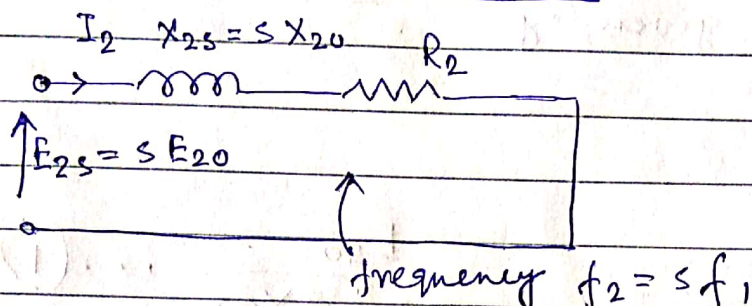 I₂ X₂ₛ = S X₂₀ R₂
E₂ₛ = S E₂₀
frequency f₂ = s f₁